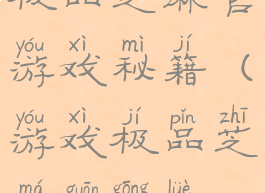 极品芝麻官
yóu xì mì jí
游戏秘籍(
yóu xì jí pǐn zhī
游戏极品芝
má guān gōng lüè